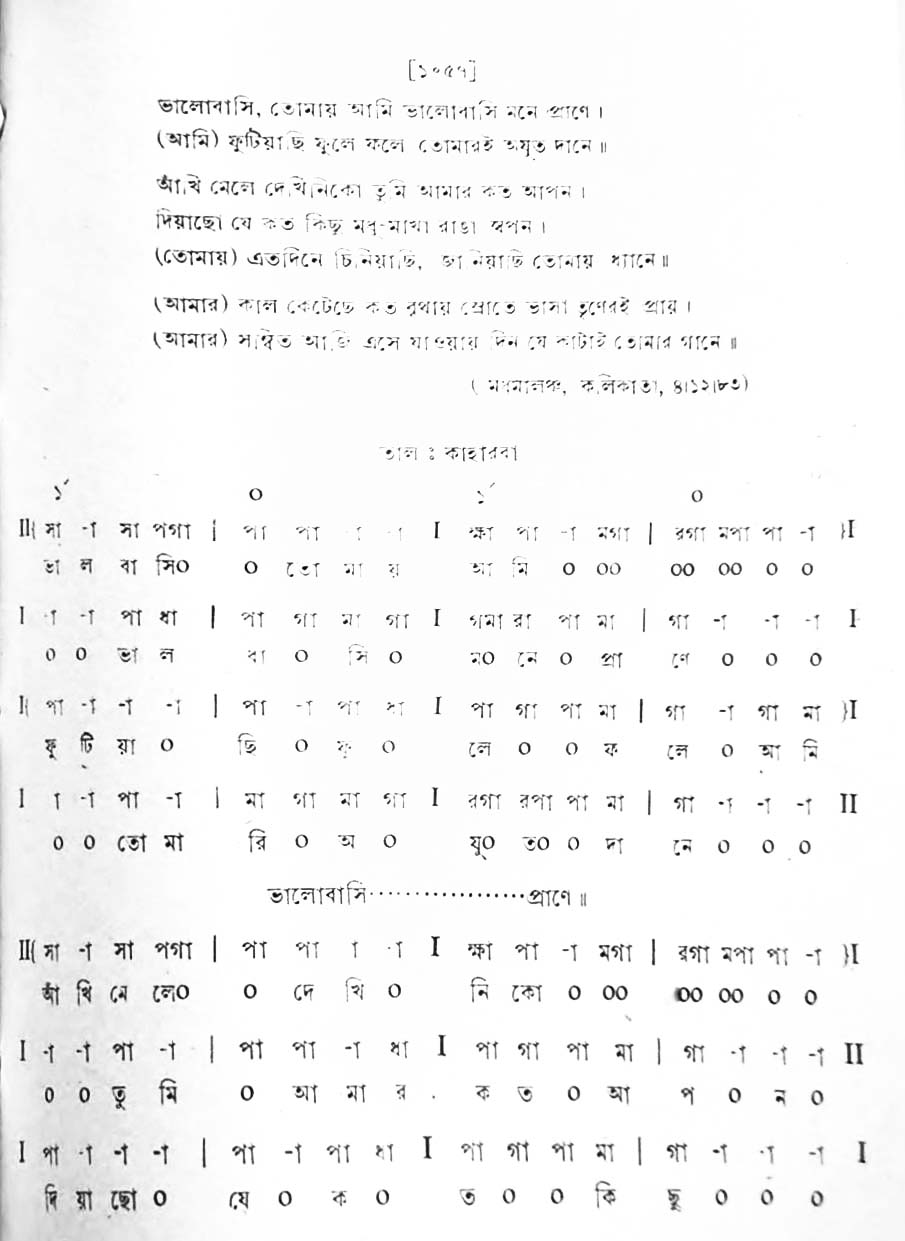 [১০৫৭]
ভালোবাসি, তোমায় আমি ভালোবাসি মনে প্রাণে।
(আমি) ফুটিয়াছি ফুলে ফলে তোমারই অযুত দানে॥
আঁখি মেলে দেখিনিকো তুমি আমার কত আপন।
দিয়াছো যে কত কিছু মধু-মাখা রাঙা স্বপন।
(তোমায়) এতদিনে চিনিয়াছি, জানিয়াছি তোমায় ধ্যানে॥
(আমার) কাল কেটেছে কত বৃথায় স্রোতে ভাসা তৃণেরই প্রায়।
(আমার) সম্বিত আজি এসে যাওয়ায় দিন যে কাটাই তোমার গানে॥
( মধুমালঞ্চ, কলিকাতা, ৪।১২।৮৩)
তাল ঃ কাহারবা
১´ ০ ১´ ০
II{ সা -া সা পগা | পা পা -া -া I ক্ষা পা -া মগা | রগা মপা পা -া }I
ভা ল বা সি০ ০ তো মা য় আ মি ০ ০০ ০০ ০০ ০ ০
I -া -া পা ধা | পা গা মা গা I গমা রা পা মা | গা -া -া -া I
০ ০ ভা ল বা ০ সি ০ ম০ নে ০ প্রা ণে ০ ০ ০
I{ পা -া -া -া | পা -া পা ধা I পা গা পা মা | গা -া গা মা }I
ফু টি য়া ০ ছি ০ ফু ০ লে ০ ০ ফ লে ০ আ মি
I া -া পা -া | মা গা মা গা I রগা রপা পা মা | গা -া -া -া II
০ ০ তো মা রি ০ অ ০ যু০ ত০ ০ দা নে ০ ০ ০
ভালোবাসি··················প্রাণে॥
II{ সা -া সা পগা | পা পা া -া I ক্ষা পা -া মগা | রগা মপা পা -া }I
আঁ খি মে লে০ ০ দে খি ০ নি কো ০ ০০ ০০ ০০ ০ ০
I -া -া পা -া | পা পা -া ধা I পা গা পা মা | গা -া -া -া II
০ ০ তু মি ০ আ মা র ক ত ০ আ প ০ ন ০
I পা -া -া -া | পা -া পা ধা I পা গা পা মা | গা -া -া -া I
দি য়া ছো ০ যে ০ ক ০ ত ০ ০ কি ছু ০ ০ ০